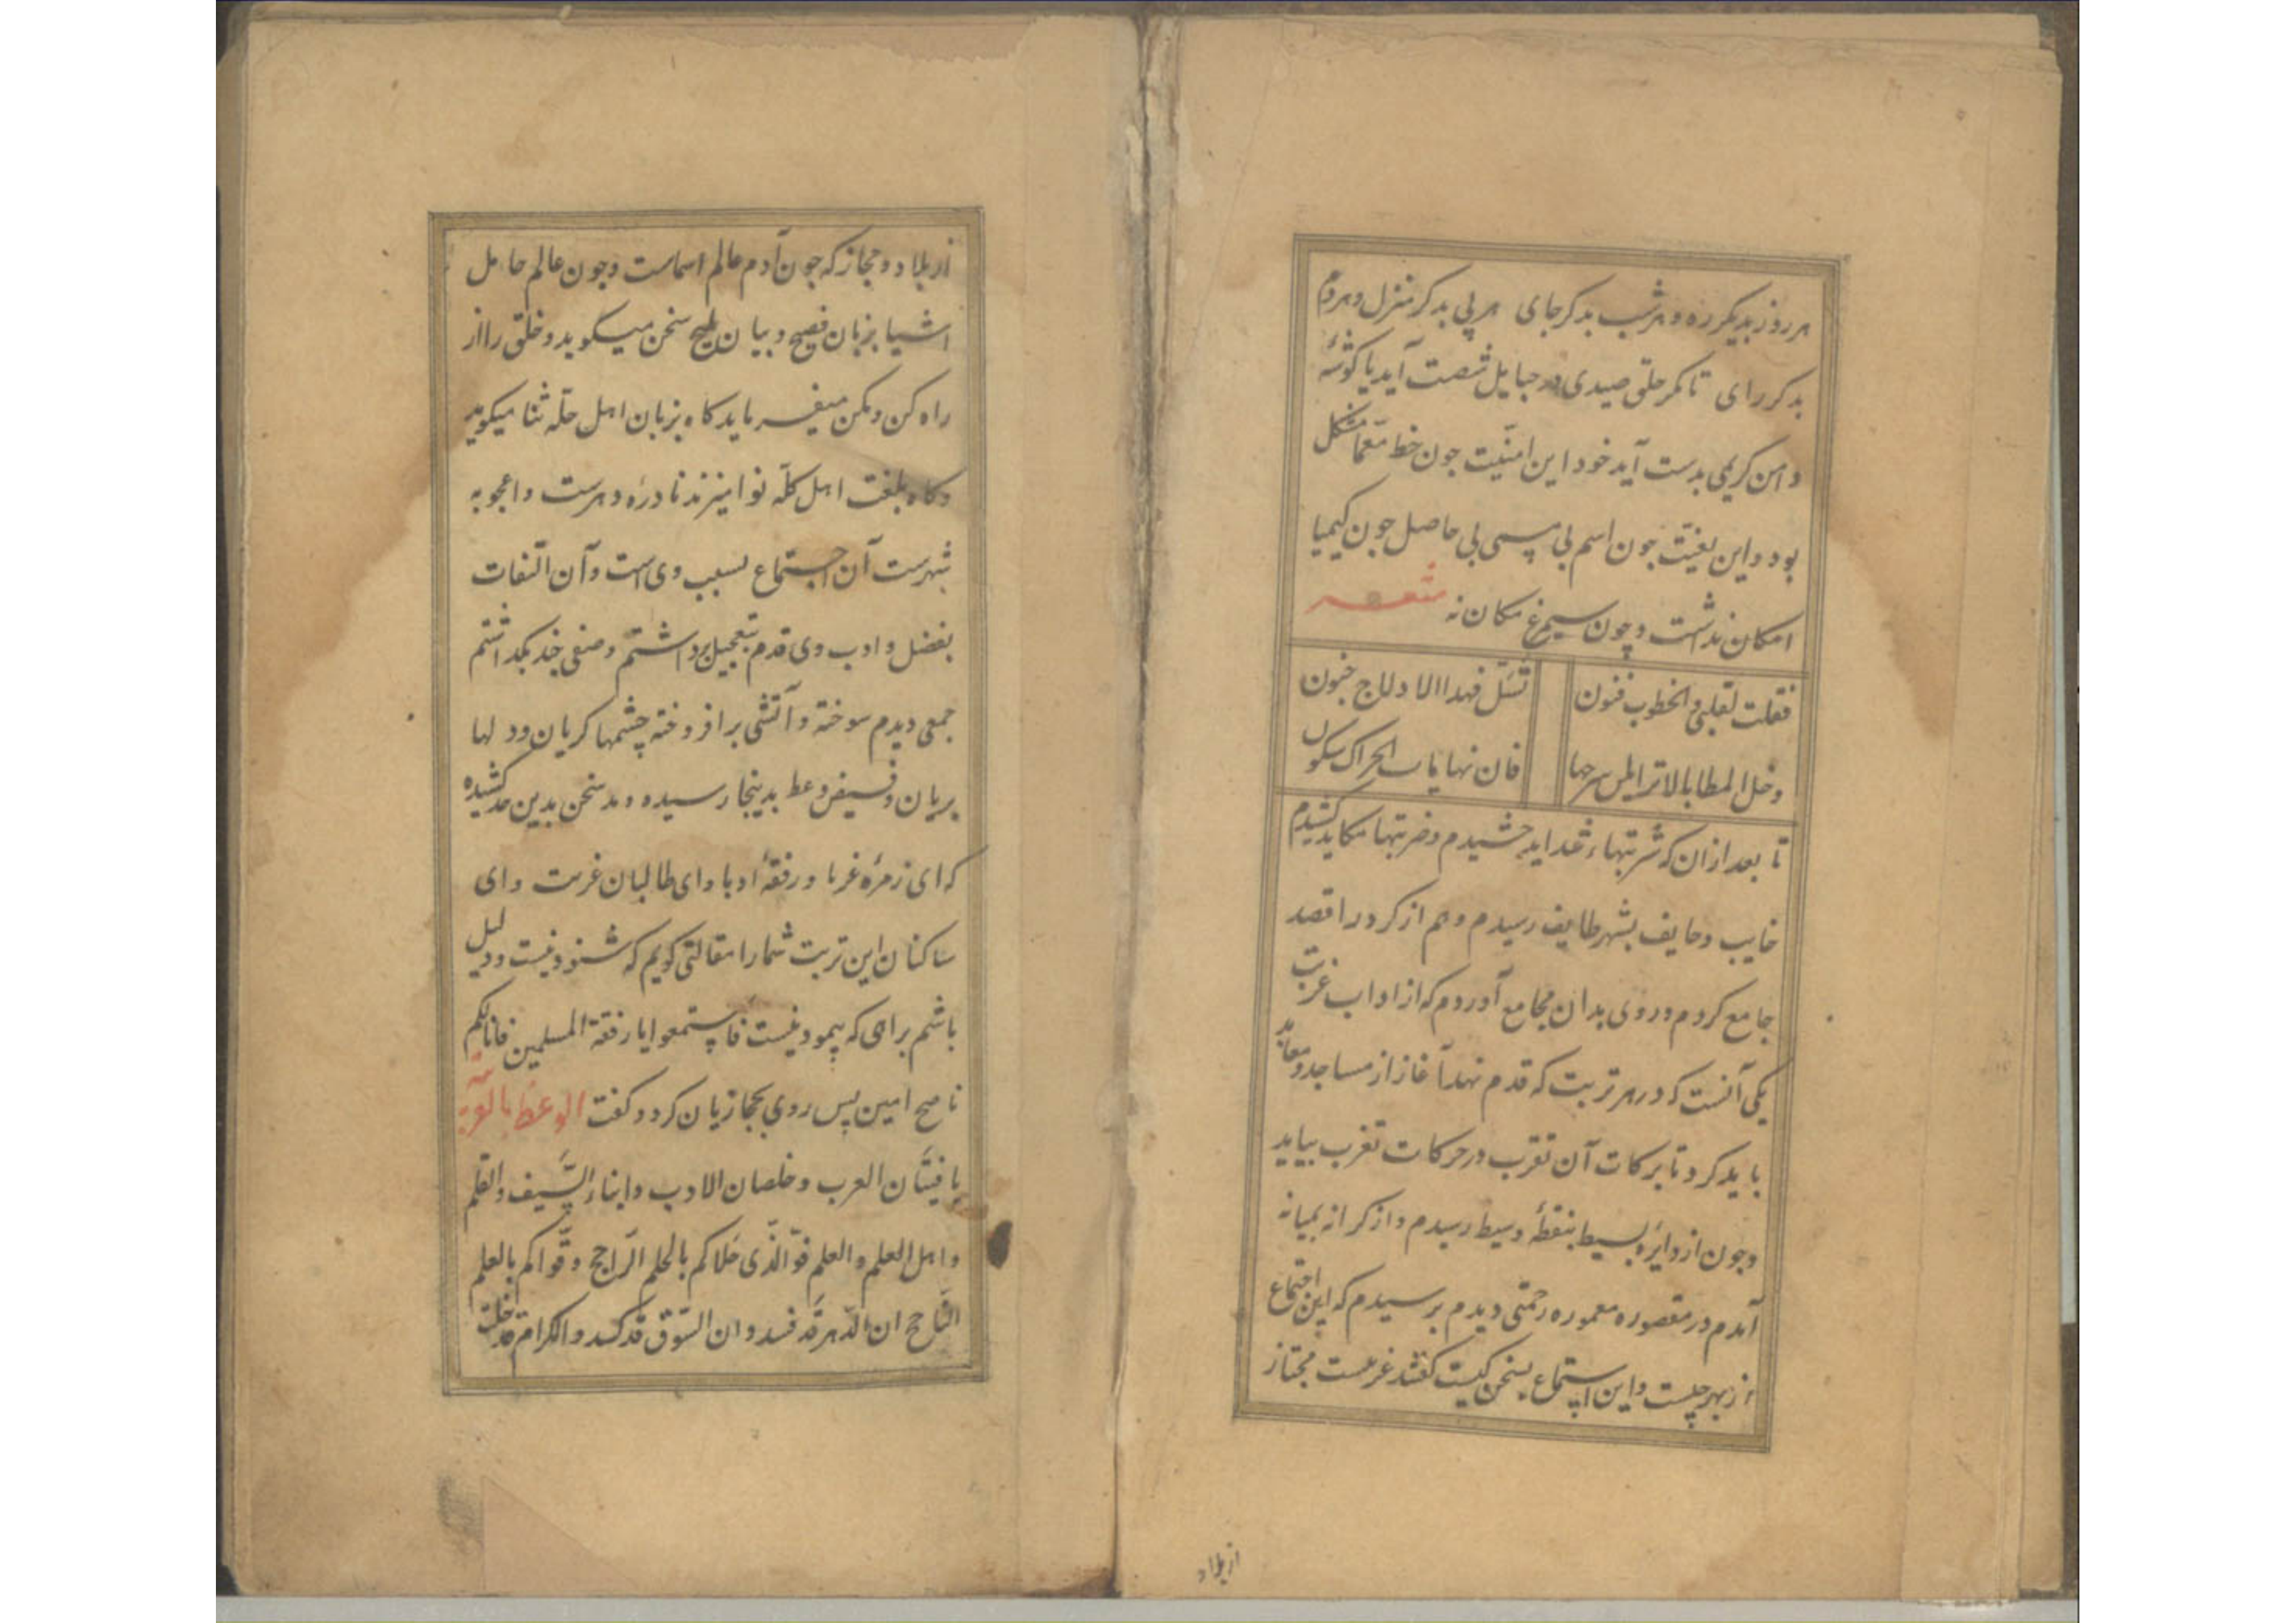 هر روز بدیگر ره و هر شب بدکر جای هر پی بدکر منزل و هر دم
بدکر رای تا مکر حلق صیدی در حبایل شصت آید یا کوشهٔ
دامن کریمی بدست آید خود این امنیت جون خط معما مشکل
بود و این بغیت جون اسم بی مسمی بی حاصل جون کیمیا
امکان نداشت و چون سیمرغ مکان نه شعر
فقلت لقلبی والخطوب فنون تسل فهدا الادلاج جنون
وخل المطایا بالا ترایلن سرجها فان نهایات الحراک سکون
تا بعد از ان که شربتهاء شداید چشیدم و ضربتها مکاید کشیدم
خایب و خایف بشهر طایف رسیدم و هم از کرد راه قصد
جامع کردم و روی بدان مجامع آوردم که از اداب غربت
یکی آنست که در هر تربت که قدم نهد آغاز از مساجد و معابد
باید کرد تا برکات آن تقرب در حرکات تغرب بیابد
وجون از دایره بسیط بنقطهٔ وسیط رسیدم و از کرانه بمیانه
آمدم در مقصوره معموره زحمتی دیدم برسیدم که این اجتماع
از بهر چیست و این استماع بسخن کیست کفتند غریبست مجتاز
از بلاد
از بلاد و حجاز که جون آدم عالم اسماست وجون عالم حامل
اشیا بزبان فصیح و بیان ملیح سخن میکوید و خلق را از
راه کن و مکن میفرماید کاه بزبان اهل حله ثنا میکوید
و کاه بلغت اهل کله نوا میزند نادره دهرست و اعجوبه
شهرست آن اجتماع بسبب وی است و آن التفات
بفضل و ادب وی قدم بتعجیل برداشتم و صفی چند بکداشتم
جمعی دیدم سوخته و آتشی برافروخته چشمها کریان و دلها
بریان و فیض وعظ بدینجا رسیده و مد سخن بدین حد کشیده
که ای زمرهٔ غربا و رفقهٔ ادبا و ای طالبان غربت و ای
ساکنان این تربت شما را مقالتی کویم که شنودنیست و دلیل
باشم براهی که پیمودنیست فاستمعوا یا رفقة المسلمین فانا لکم
ناصح امین پس روی بحجازیان کرد و کفت الوعظ بالعربیه
یا فتیان العرب و خلصان الادب و ابناء السیف والقلم
واهل العلم والعلم فو الذی حلاکم بالحلم الراجح وقواکم بالعلم
الناجح ان الدهر قد فسد وان السوق قد کسد والکرام قد خلت